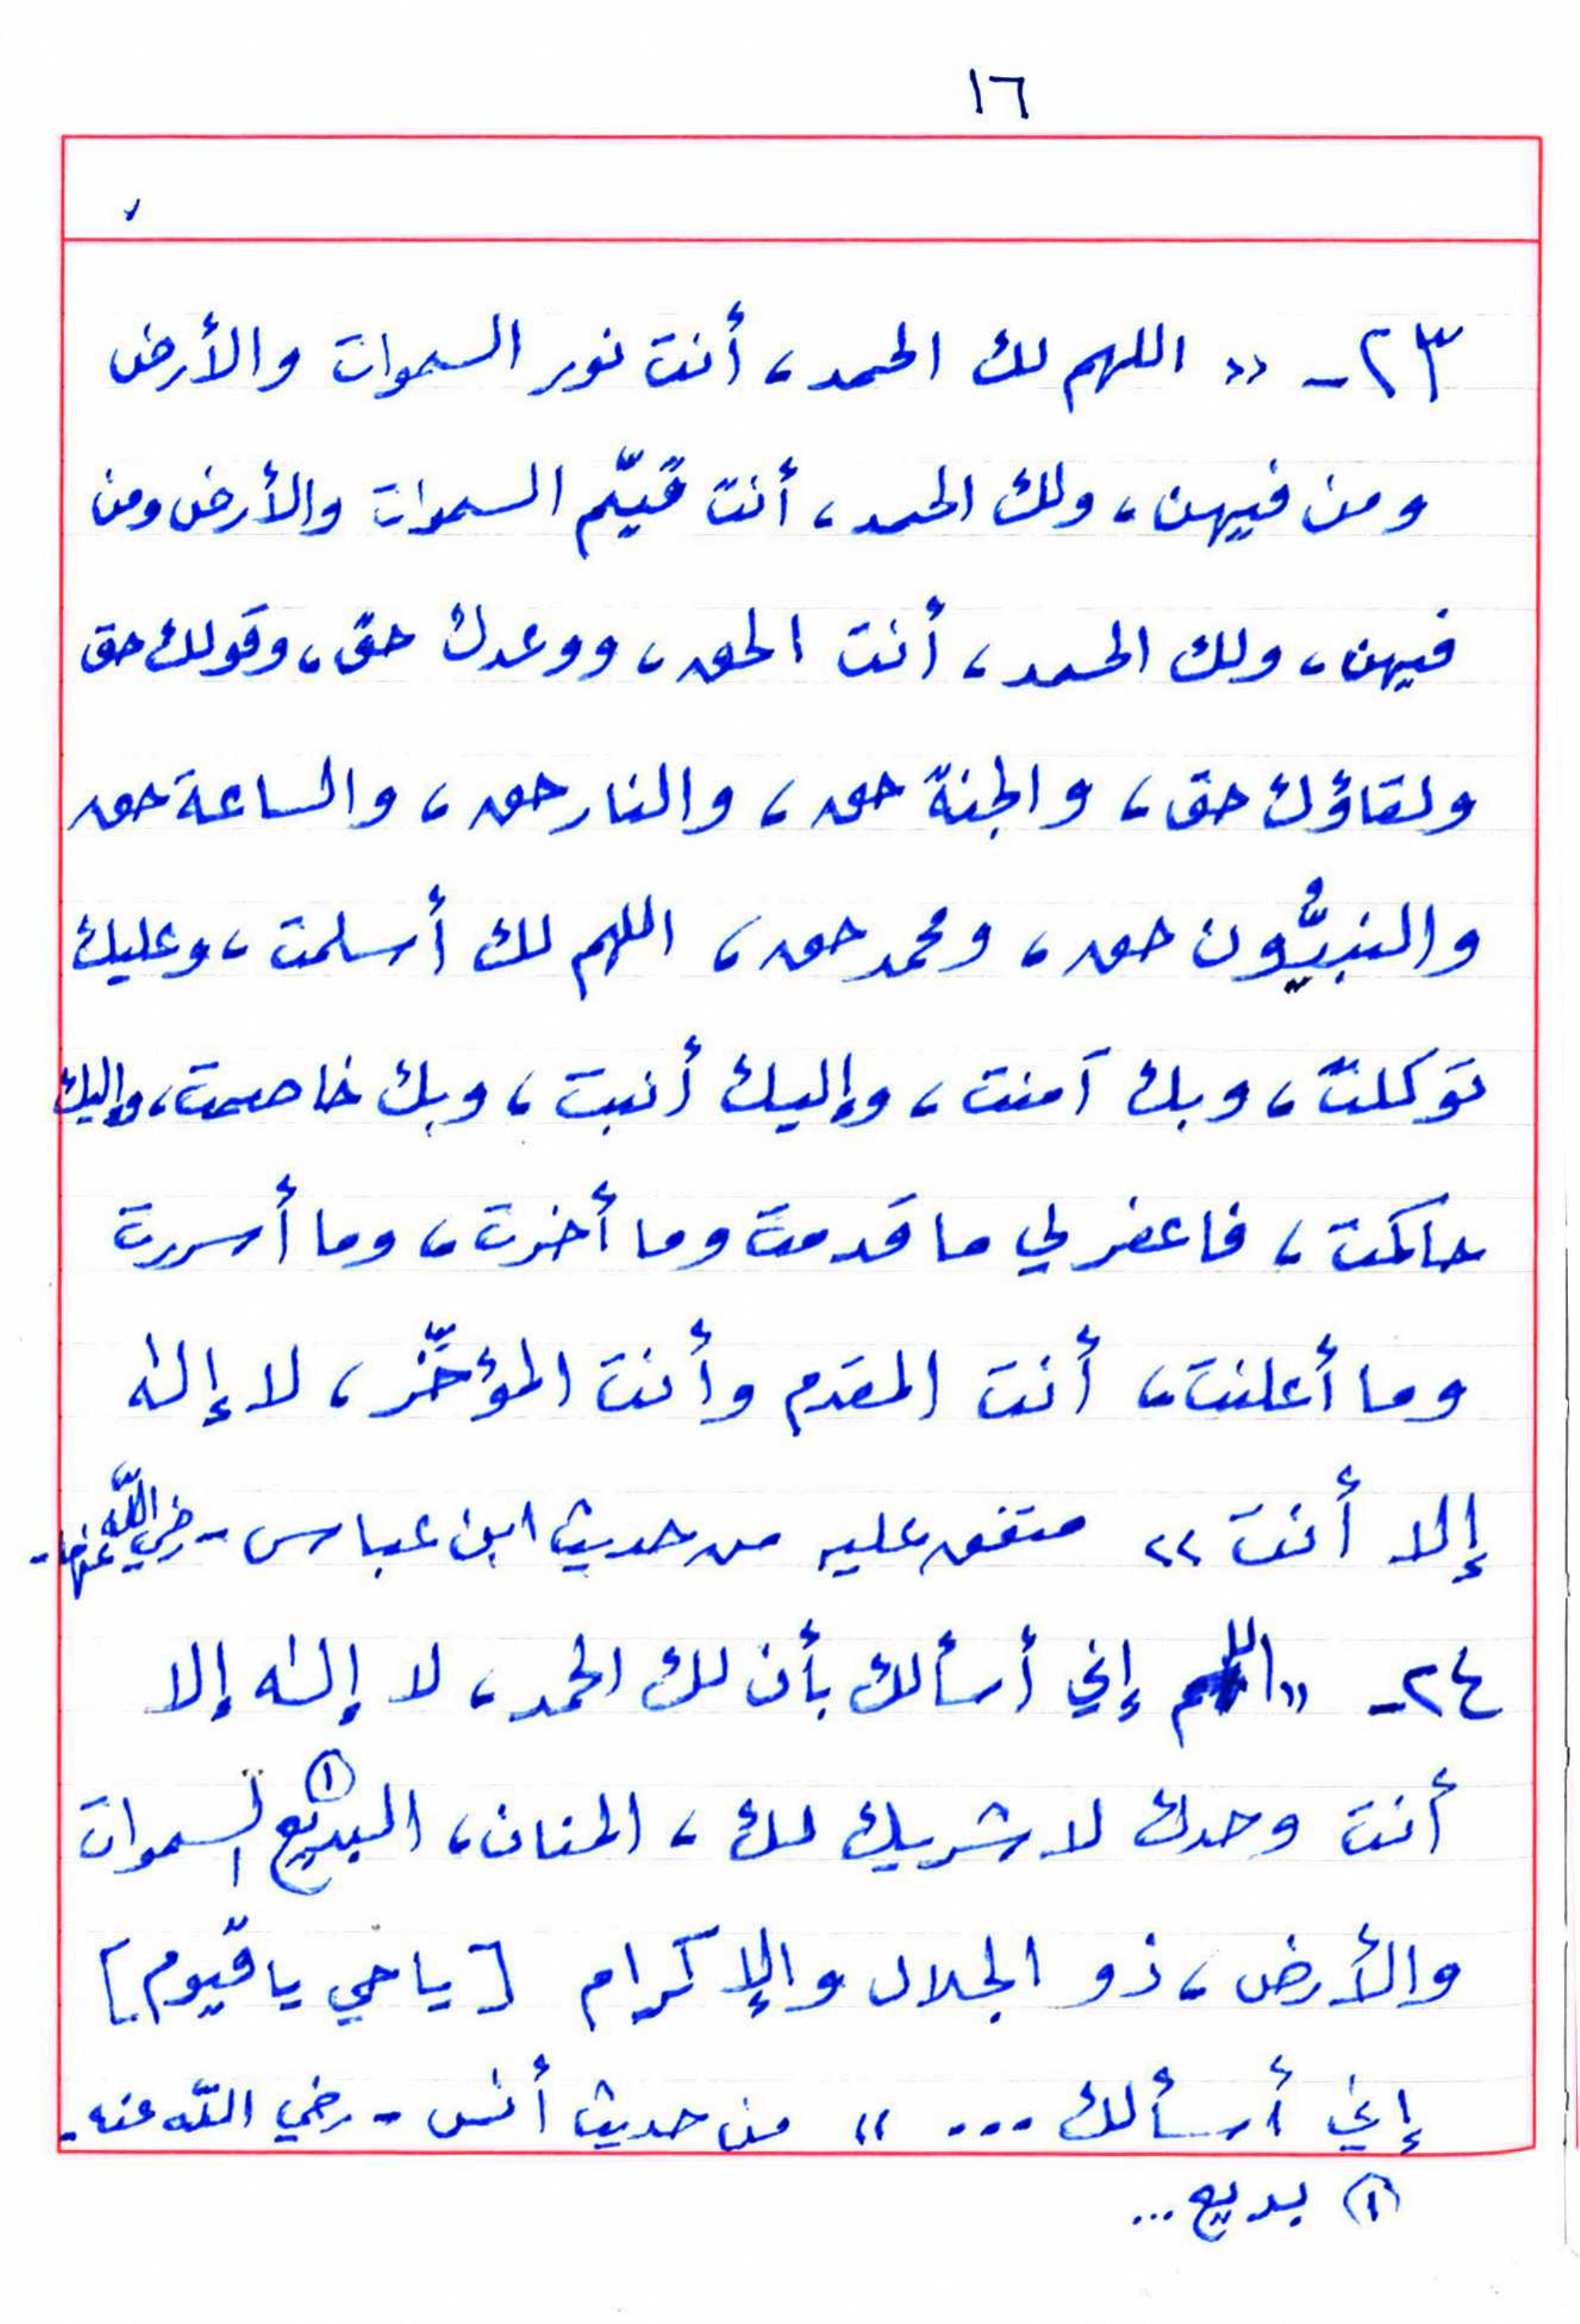 ١٦
٢٣- « اللهم لك الحمد، أنت نور السموات والأرض
ومن فيهن، ولك الحمد، أنت قيّم السموات والأرض ومن
فيهن، ولك الحمد، أنت الحق، ووعدك حق، وقولك حق
ولقاؤك حق، والجنة حق، والنار حق، والساعة حق
والنبيُّون حق، ومحمد حق، اللهم لك أسلمت، وعليك
توكلت، وبك آمنت، وإليك أنبت، وبك خاصمت، وإليك
حاكمت، فاغفر لي ما قدمت وما أخرت، وما أسررت
وما أعلنت، أنت المقدم وأنت المؤخِّر، لا إله
إلا أنت » متفق عليه من حديث ابن عباس - رضي الله عنهما -
٢٤- « اللهم إني أسألك بأن لك الحمد، لا إله إلا
أنت وحدك لا شريك لك، المنان، البديع (١) السموات
والأرض، ذو الجلال والإكرام [ يا حي يا قيوم ]
إني أسألك ... » من حديث أنس - رضي الله عنه -
(١) بديع ...